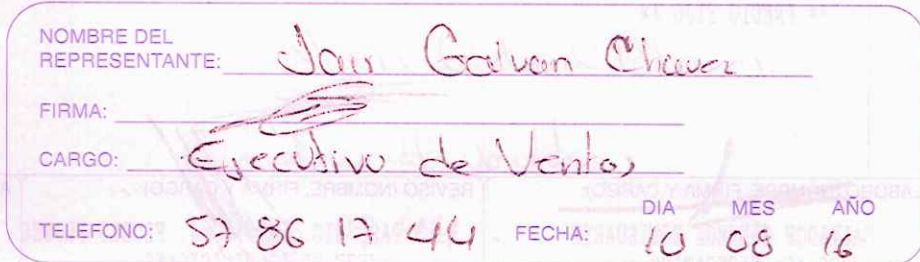 NOMBRE DEL
REPRESENTANTE: Jair Galvan Chavez
FIRMA:
CARGO: Ejecutivo de Ventas
DIA MES AÑO
TELEFONO: 57 86 17 44 FECHA: 10 08 16